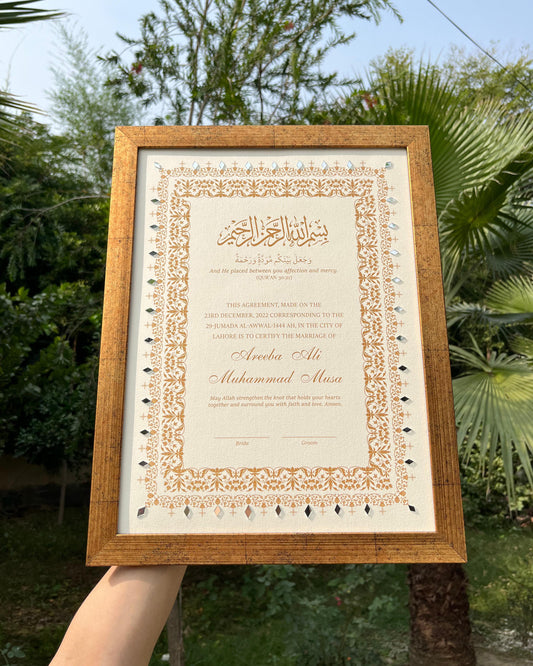 بسم الله الرحمن الرحيم
وَجَعَلَ بَيْنَكُم مَّوَدَّةً وَرَحْمَةً
And He placed between you affection and mercy.
(QUR'AN 30:21)
THIS AGREEMENT, MADE ON THE
23RD DECEMBER, 2022 CORRESPONDING TO THE
29-JUMADA AL-AWWAL-1444 AH, IN THE CITY OF
LAHORE IS TO CERTIFY THE MARRIAGE OF
Areeba Ali
Muhammad Musa
May Allah strengthen the knot that holds your hearts
together and surround you with faith and love. Ameen.
Bride Groom